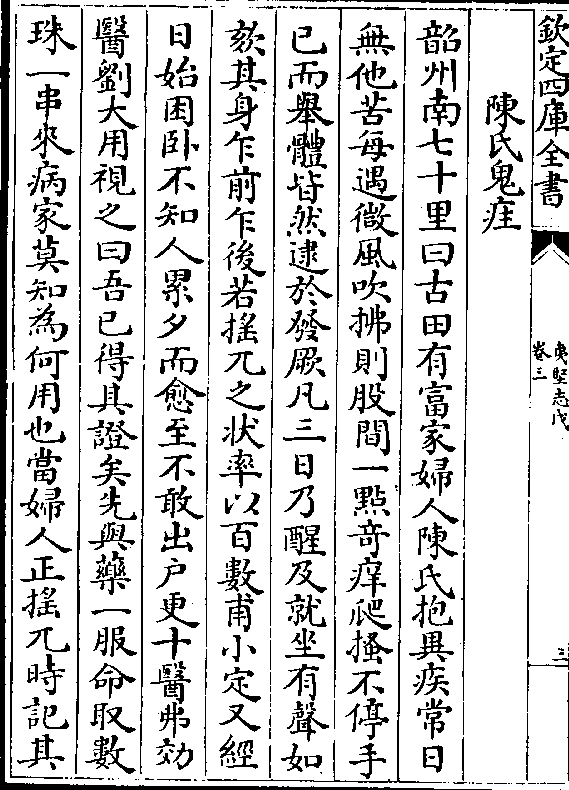 欽定四庫全書
夷堅志戊
卷三
三
陳氏鬼疰
韶州南七十里曰古田有富家婦人陳氏抱異疾常日
無他苦每遇微風吹拂則股間一點奇痒爬搔不停手
已而舉體皆然逮於發厥凡三日乃醒及就坐有聲如
欬其身乍前乍後若搖兀之狀率以百數甫小定又經
日始困卧不知人累夕而愈至不敢出户更十醫弗効
醫劉大用視之曰吾已得其證矣先與藥一服命取數
珠一串來病家莫知為何用也當婦人正搖兀時記其